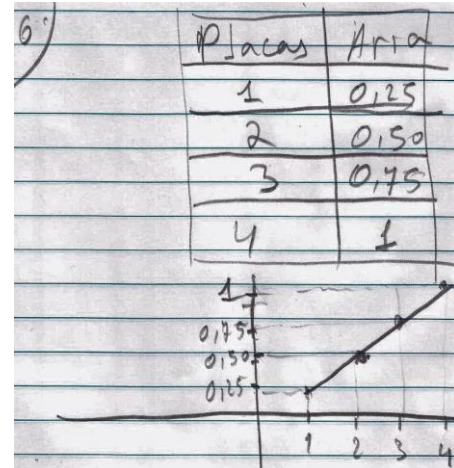 6º)
Placas Área
1 0,25
2 0,50
3 0,75
4 1
1
0,75
0,50
0,25
1 2 3 4